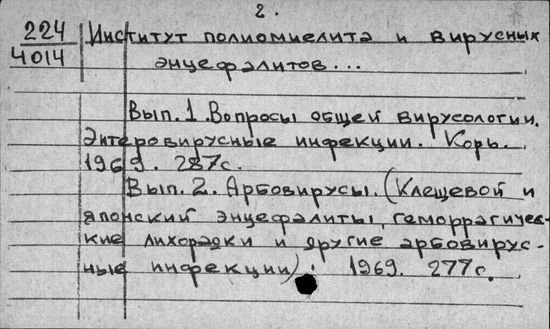 2.
224
4014
Институт полиомиелита и вирусных
энцефалитов...
Вып. 1. Вопросы общей вирусологии.
Энтеровирусные инфекции. Корь.
1969. 287с.
Вып. 2. Арбовирусы. (Клещевой и
японский энцефалиты, геморрагичес-
кие лихорадки и другие арбовирус-
ные инфекции). 1969. 277с.